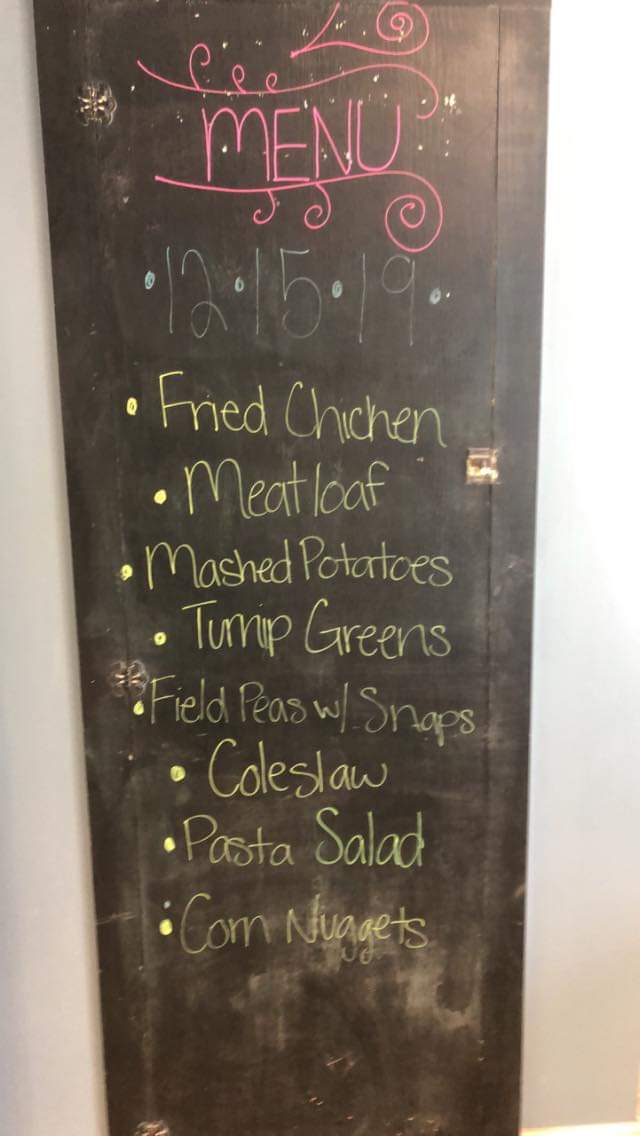 MENU
• 12 • 15 • 19 •
• Fried Chicken
• Meatloaf
• Mashed Potatoes
• Turnip Greens
• Field Peas w/ Snaps
• Coleslaw
• Pasta Salad
• Corn Nuggets